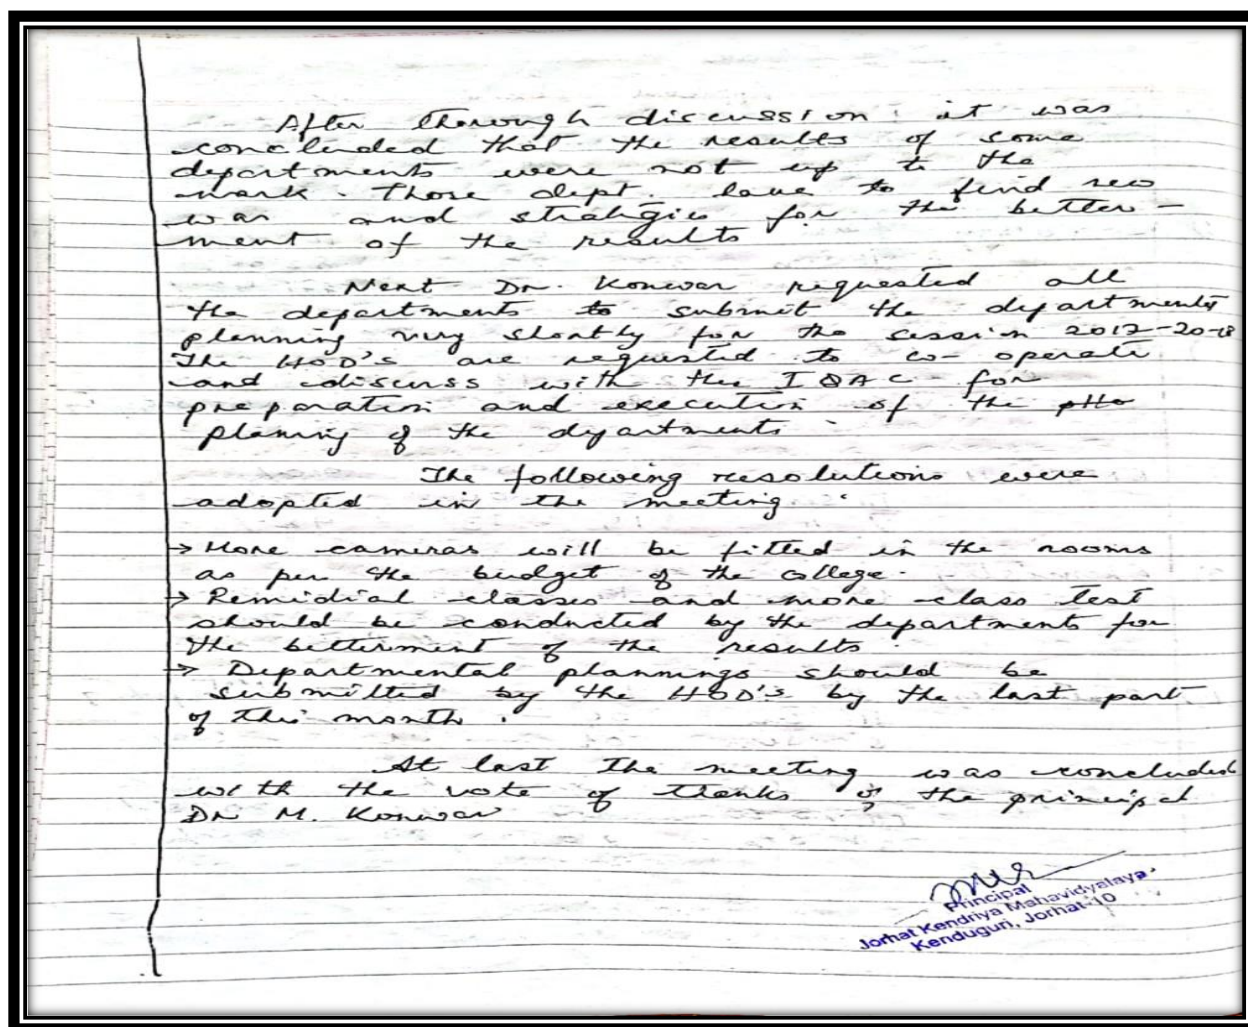 After thorough discussion it was
concluded that the results of some
departments were not up to the
mark. Those dept. have to find new
was and strategies for the better-
ment of the results
Next Dr. Konwar requested all
the departments to submit the departments
planning very shortly for the session 2017-2018
The HOD's are requested to co-operate
and discuss with the IQAC for
preparation and execution of the
planing of the departments.
The following resolutions were
adopted in the meeting.
→ More cameras will be fitted in the rooms
as per the budget of the college.
→ Remidial classes and more class test
should be conducted by the departments for
the betterment of the results.
→ Departmental plannings should be
submitted by the HOD's by the last part
of this month.
At last the meeting was concluded
with the vote of thanks of the principal
Dr M. Konwar
Principal
Jorhat Kendriya Mahavidyalaya.
Kenduguri, Jorhat-10